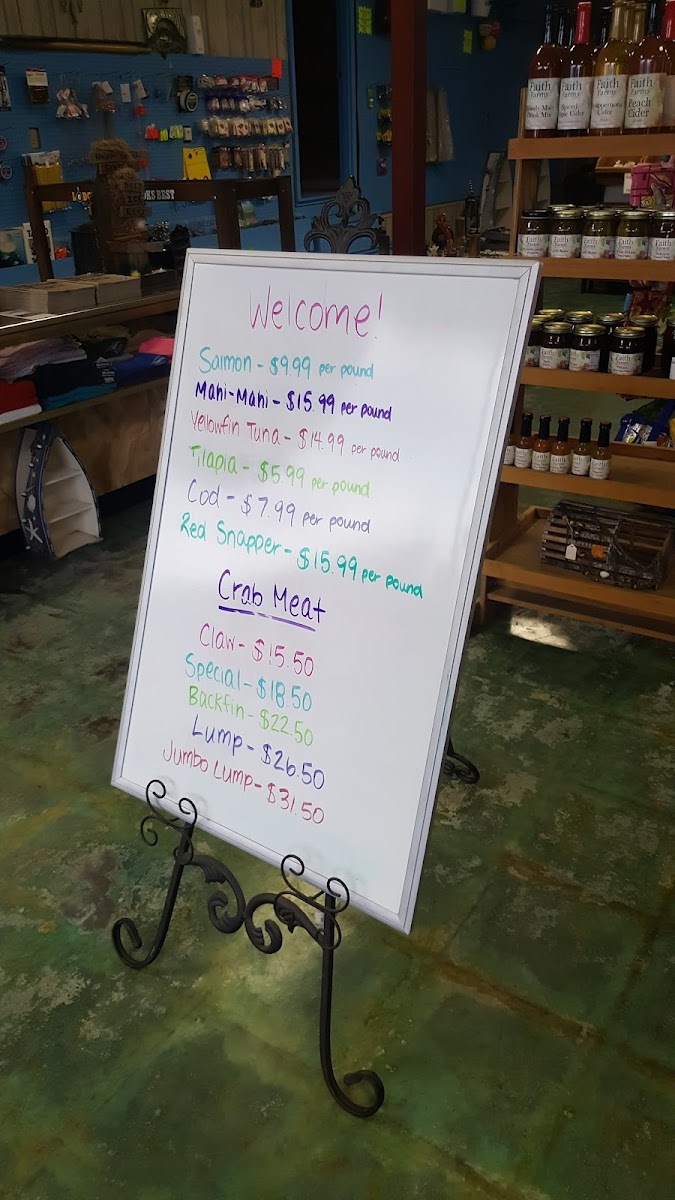 Welcome!
Salmon - $9.99 per pound
Mahi-Mahi - $15.99 per pound
Yellowfin Tuna - $14.99 per pound
Tilapia - $5.99 per pound
Cod - $7.99 per pound
Red Snapper - $15.99 per pound
Crab Meat
Claw - $15.50
Special - $18.50
Backfin - $22.50
Lump - $26.50
Jumbo Lump - $31.50
Faith Farms
Faith Farms
Cider
Faith Farms
Faith Farms
Peach
Cider
Faith
Faith
Faith
Faith
Faith